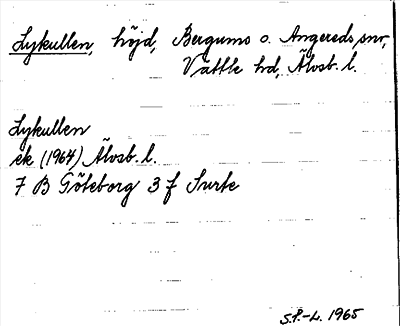 Lykullen, höjd, Bergums o. Angereds snr,
Vättle hd, Älvsb. l.
Lykullen
ek (1964) Älvsb. l.
7 B Göteborg 3 f Surte
S.P.-L. 1965